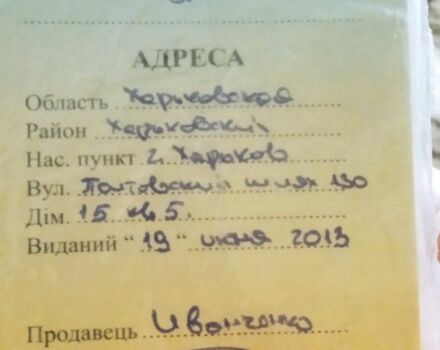 АДРЕСА
Область Харьковская
Район Харьковский
Нас. пункт г. Харьков
Вул. Полтовский шлях 130
Дім. 15 кв 5.
Виданий “ 19 “ июня 2013
Продавець Иванченко